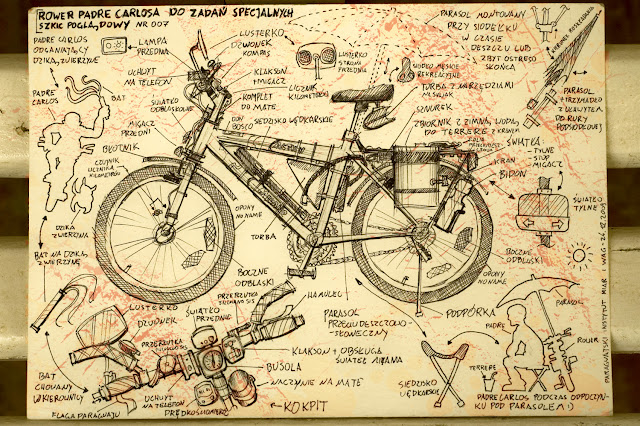 ROWER PADRE CARLOSA DO ZADAŃ SPECJALNYCH
SZKIC POGLĄDOWY NR 007
PADRE CARLOS
ODGANIAJĄCY
DZIKĄ ZWIERZYNĘ
LAMPA
PRZEDNIA
UCHWYT
NA TELEFON
PADRE
CARLOS
BAT
ŚWIATŁO
ODBLASKOWE
MIGACZ
PRZEDNI
BŁOTNIK
CZUJNIK
LICZNIKA
KILOMETRÓW
DZIKA
ZWIERZYNA
BAT NA DZIKĄ
ZWIERZYNĘ
LUSTERKO
DZWONEK
KOMPAS
KLAKSON
+MIGACZ
KOMPLET
DO MATE
DON
BOSCO
SIEDZISKO WĘDKARSKIE
LUSTERKO
STRONA
PRZEDNIA
LICZNIK
KILOMETRÓW
PARASOL MONTOWANY
PRZY SIODEŁKU
W CZASIE
DESZCZU LUB
ZBYT OSTREGO
SŁOŃCA
SIODŁO MĘSKIE
REKREACYJNE
TORBA Z NARZĘDZIAMI
SZNUREK
ZBIORNIK Z ZIMNĄ WODĄ
DO TERERE Z KRANEM
KIERUNEK ROZKŁADANIA
PARASOL
PRZYMADŁO
Z UCHWYTEM
DO RURY
PODSIODŁOWEJ
ŚWIATŁA
- TYLNE
- STOP
- MIGACZ
KRAN
BIDON
ŚWIATŁO
TYLNE
BOCZNE
ODBLASKI
OPONY
NO NAME
OPONY
NO NAME
TORBA
BOCZNE
ODBLASKI
PODPÓRKA
LUSTERKO
DZWONEK
ŚWIATŁO
PRZEDNIE
PRZERZUTKA
PRZERZUTKA
HAMULEC
PARASOL
PRZECIWDESZCZOWO-
SŁONECZNY
KLAKSON + OBSŁUGA
BUSOLA
NACZYNIE NA MATE
KOKPIT
BAT
CHOWANY
W KIEROWNICY
FLAGA PARAGWAJU
UCHWYT
NA TELEFON
PRĘDKOŚCIOMIERZ
SIEDZISKO
WĘDKARSKIE
TERERE
PADRE
PARASOL
ROWER
PADRE CARLOS PODCZAS ODPOCZYN-
KU POD PARASOLEM :)
PARAGWAJSKI INSTYTUT MIAR I WAG